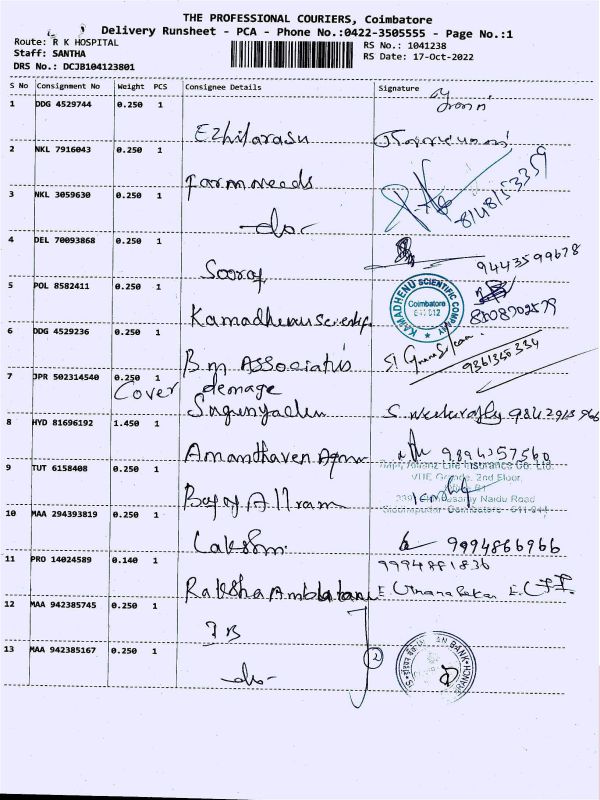 THE PROFESSIONAL COURIERS, Coimbatore
Delivery Runsheet - PCA - Phone No.:0422-3505555 - Page No.:1
Route: R K HOSPITAL
Staff: SANTHA
DRS No.: DCJB104123801
RS No.: 1041238
RS Date: 17-Oct-2022
S No Consignment No Weight PCS Consignee Details Signature
1 DDG 4529744 0.250 1
Ezhilarasu
2 NKL 7916043 0.250 1
Farm needs
3 NKL 3059630 0.250 1
-do-
8148153359
4 DEL 70093868 0.250 1
Sooraj
9443599678
5 POL 8582411 0.250 1
Kamadhenu Scientific
KAMADHENU SCIENTIFIC COMPANY
Coimbatore
8508902579
6 DDG 4529236 0.250 1
B.M. Associatis
9361360334
7 JPR 502314540 0.250 1
Cover demage
8 HYD 81696192 1.450 1
Amanthaven
9894357560
9 TUT 6158408 0.250 1
Bajaj Allianz Life Insurance Co. Ltd.
VUE Grande, 2nd Floor,
Naidu Road
10 MAA 294393819 0.250 1
Lakshmi
9994866966
11 PRO 14024589 0.140 1
9994881836
Raksha
12 MAA 942385745 0.250 1
IB
13 MAA 942385167 0.250 1
-do-
2